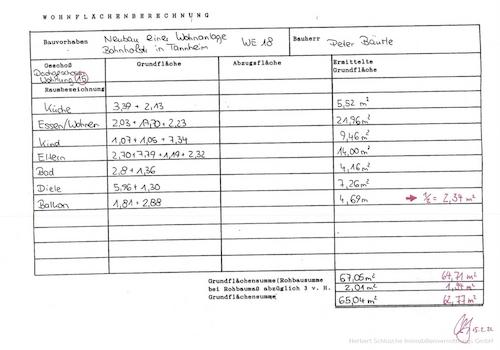 WOHNFLÄCHENBERECHNUNG
Bauvorhaben Neubau einer Wohnanlage WE 18 Bauherr Peter Bäurle
Bahnhofstr. in Tannheim
Geschoß Grundfläche Abzugsfläche Ermittelte
Dachgeschoss Grundfläche
Wohnung 15
Raumbezeichnung
Küche 3,39 + 2,13 5,52 m²
Essen/Wohnen 2,03 + 17,70 + 2,23 21,96 m²
Kind 1,07 + 1,05 + 7,34 9,46 m²
Eltern 2,70 + 7,79 + 1,19 + 2,32 14,00 m²
Bad 2,8 + 1,36 4,16 m²
Diele 5,96 + 1,30 7,26 m²
Balkon 1,81 + 2,88 4,69 m → ½ = 2,34 m²
Grundflächensumme (Rohbausumme 67,05 m² 64,71 m²
bei Rohbaumaß abzüglich 3 v. H. 2,01 m² 1,94 m²
Grundflächensumme 65,04 m² 62,77 m²